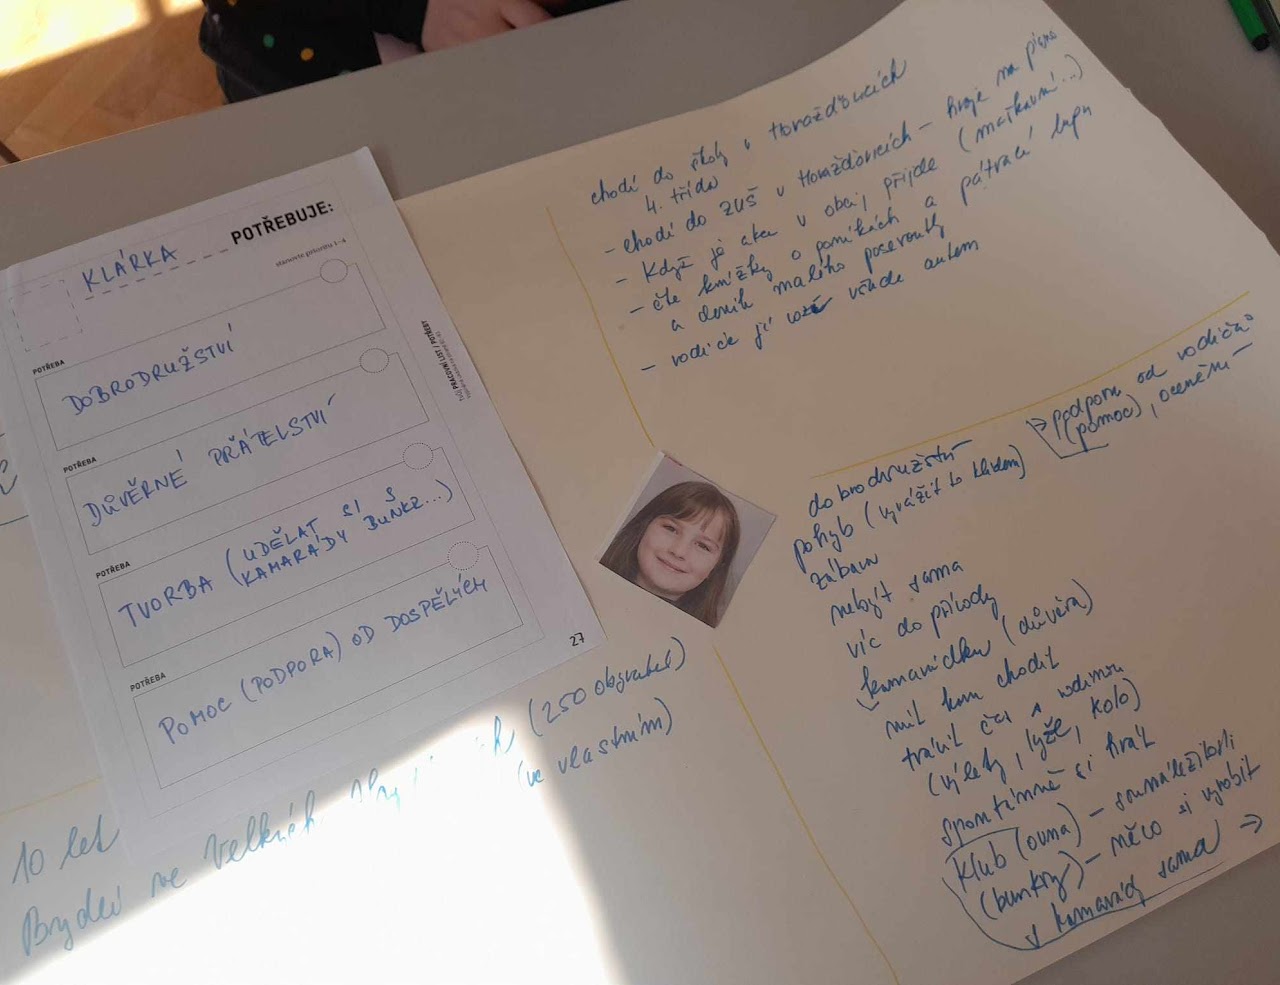 KLÁRKA POTŘEBUJE:
stanovte prioritu 1–4
POTŘEBA
DOBRODRUŽSTVÍ
POTŘEBA
DŮVĚRNÉ PŘÁTELSTVÍ
POTŘEBA
TVORBA (UDĚLAT SI S
KAMARÁDY BUNKR...)
POTŘEBA
POMOC (PODPORA) OD DOSPĚLÝCH
27
PRACOVNÍ LIST / POTŘEBY
chodí do školy v Horažďovicích
4. třída
- chodí do ZUŠ v Horažďovicích - hraje na piano
- Když je akce v obci, přijde (maškarní...)
- čte knížky o ponících a pátrací lupu
a deník malého poseroutky
- rodiče jí vozí všude autem
dobrodružství
pohyb (vyrážet ko klukem)
zábava
nebýt sama
víc do přírody
kamarádku (důvěra)
mít kam chodit
trávit čas s rodinou
(výlety, lyže, kolo)
spontánně si hrát
klub (ovna) - sounáležitosti
(bunkry) - něco si vyrobit
s kamarády sama →
→ podporu od rodičů
(pomoc), ocenění
10 let
Bydlí ve Velkých (250 obyvatel)
(ve vlastním)